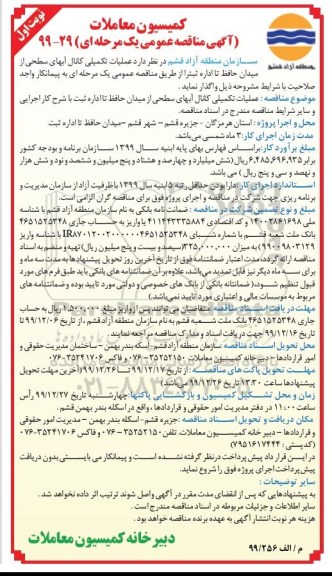 نوبت اول
کمیسیون معاملات
(آگهی مناقصه عمومی یک مرحله ای) ۲۹-۹۹
منطقه آزاد قشم
سازمان منطقه آزاد قشم در نظر دارد عملیات تکمیلی کانال آبهای سطحی از
میدان حافظ تا اداره ثبت را از طریق مناقصه عمومی یک مرحله ای به پیمانکار واجد
صلاحیت با شرایط مشروحه ذیل واگذار نماید.
موضوع مناقصه: عملیات تکمیلی کانال آبهای سطحی از میدان حافظ تا اداره ثبت با شرح کار اجرایی
و سایر شرایط مناقصه مندرج در اسناد مناقصه.
محل و اجرا پروژه: استان هرمزگان - جزیره قشم - شهر قشم - میدان حافظ تا اداره ثبت
مدت زمان اجرای کار: ۳ ماه شمسی می باشد.
مبلغ برآورد کار: براساس فهارس بهای پایه ابنیه سال ۱۳۹۹ سازمان برنامه و بودجه کشور
برابر ۶,۴۸۵,۶۹۶,۹۳۵ ریال (شش میلیارد و چهارصد و هشتاد و پنج میلیون و ششصد و نود و شش هزار
و نهصد و سی و پنج ریال) می باشد.
استاندارد اجرای کار: دارا بودن حداقل رتبه ۵ ابنیه سال ۱۳۹۹ با ظرفیت آزاد از سازمان مدیریت و
برنامه ریزی جهت شرکت در مناقصه و اجرای پروژه فوق برای مناقصه گران الزامی است.
مبلغ و نوع تضمین شرکت در مناقصه: ضمانت نامه بانکی به نام سازمان منطقه آزاد قشم با شناسه
ملی ۱۴۰۰۲۸۶۱۶۹۸ و کد اقتصادی ۴۱۱۳۴۳۳۳۵۸۸۴ یا واریز به حساب جاری ۴۶۵۱۵۲۵۳۴۸
بانک ملت شعبه قشم با شماره شبای
میزان ۳۲۵,۰۰۰,۰۰۰ (سیصد و بیست و پنج میلیون ریال) تهیه و ضم به اسناد
مناقصه ارائه گردد، مدت اعتبار ضمانتنامه فوق از تاریخ آخرین روز تحویل پیشنهادها به مدت سه ماه و
برای سه ماه دیگر نیز قابل تمدید می باشد، علاوه بر آن ضمانتنامه های بانکی باید طبق فرم های مورد
قبول تنظیم شوند. (ضمانتنامه بانکی از بانک های خصوصی و دولتی مورد تایید بوده و ضمانتنامه های
مربوط به موسسات مالی و اعتباری مورد تایید نمی باشد)
مهلت دریافت اسناد مناقصه: متقاضیان می توانند پس از واریز مبلغ ۱,۵۰۰,۰۰۰ ریال به حساب
جاری ۴۶۵۱۵۲۵۳۴۸ بانک ملت شعبه قشم به نام سازمان منطقه آزاد قشم، از تاریخ ۹۹/۱۲/۰۶ تا
تاریخ ۹۹/۱۲/۱۶ جهت دریافت اسناد و مدارک مناقصه مراجعه نمایند.
محل تحویل اسناد مناقصه: سازمان منطقه آزاد قشم - اسکله بندر بهمن - ساختمان مدیریت حقوقی و
امور قراردادها - دبیرخانه کمیسیون معاملات ۳۵۲۵۲۱۵۰-۰۷۶ و فاکس ۳۵۲۴۱۷۰۶-۰۷۶
مهلت تحویل پاکت های مناقصه: از تاریخ ۹۹/۱۲/۱۷ تا ۹۹/۱۲/۲۶ (آخرین مهلت تحویل
پیشنهادها ساعت ۱۳:۳۰ تاریخ ۹۹/۱۲/۲۶ می باشد)
زمان و محل تشکیل کمیسیون و بازگشایی پاکتها: چهارشنبه تاریخ ۹۹/۱۲/۲۷ رأس
ساعت ۱۱:۰۰ در دفتر مدیریت امور حقوقی و قراردادها، واقع در اسکله بندر بهمن قشم.
مکان دریافت و تحویل اسناد مناقصه: جزیره قشم - اسکله بندر بهمن - مدیریت امور حقوقی
و قراردادها - دبیرخانه کمیسیون معاملات، تلفن ۳۵۲۵۲۱۵۰-۰۷۶ و فاکس ۳۵۲۴۱۷۰۶-۰۷۶
(کدپستی: ۷۹۵۱۶۱۷۴۴۴)
در این قرار داد پیش پرداخت در نظر گرفته نشده است و پیمانکار می بایستی بدون دریافت
پیش پرداخت اجرای پروژه فوق را شروع نماید.
سایر توضیحات:
به پیشنهادهایی که پس از انقضای مدت مقرر در آگهی واصل شوند ترتیب اثر داده نخواهد شد.
سایر اطلاعات و جزئیات مربوطه در اسناد مناقصه مندرج است.
هزینه هر نوبت انتشار آگهی به عهده برنده مناقصه خواهد بود.
دبیرخانه کمیسیون معاملات
م / الف ۹۹/۲۵۶